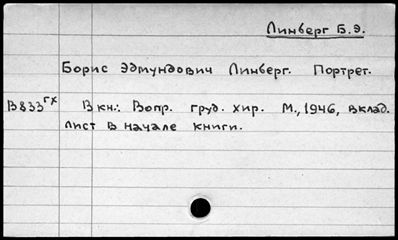 Линберг Б.Э.
Борис Эдмундович Линберг. Портрет.
В833гх В кн.: Вопр. груд. хир. М., 1946, вклад.
лист в начале книги.